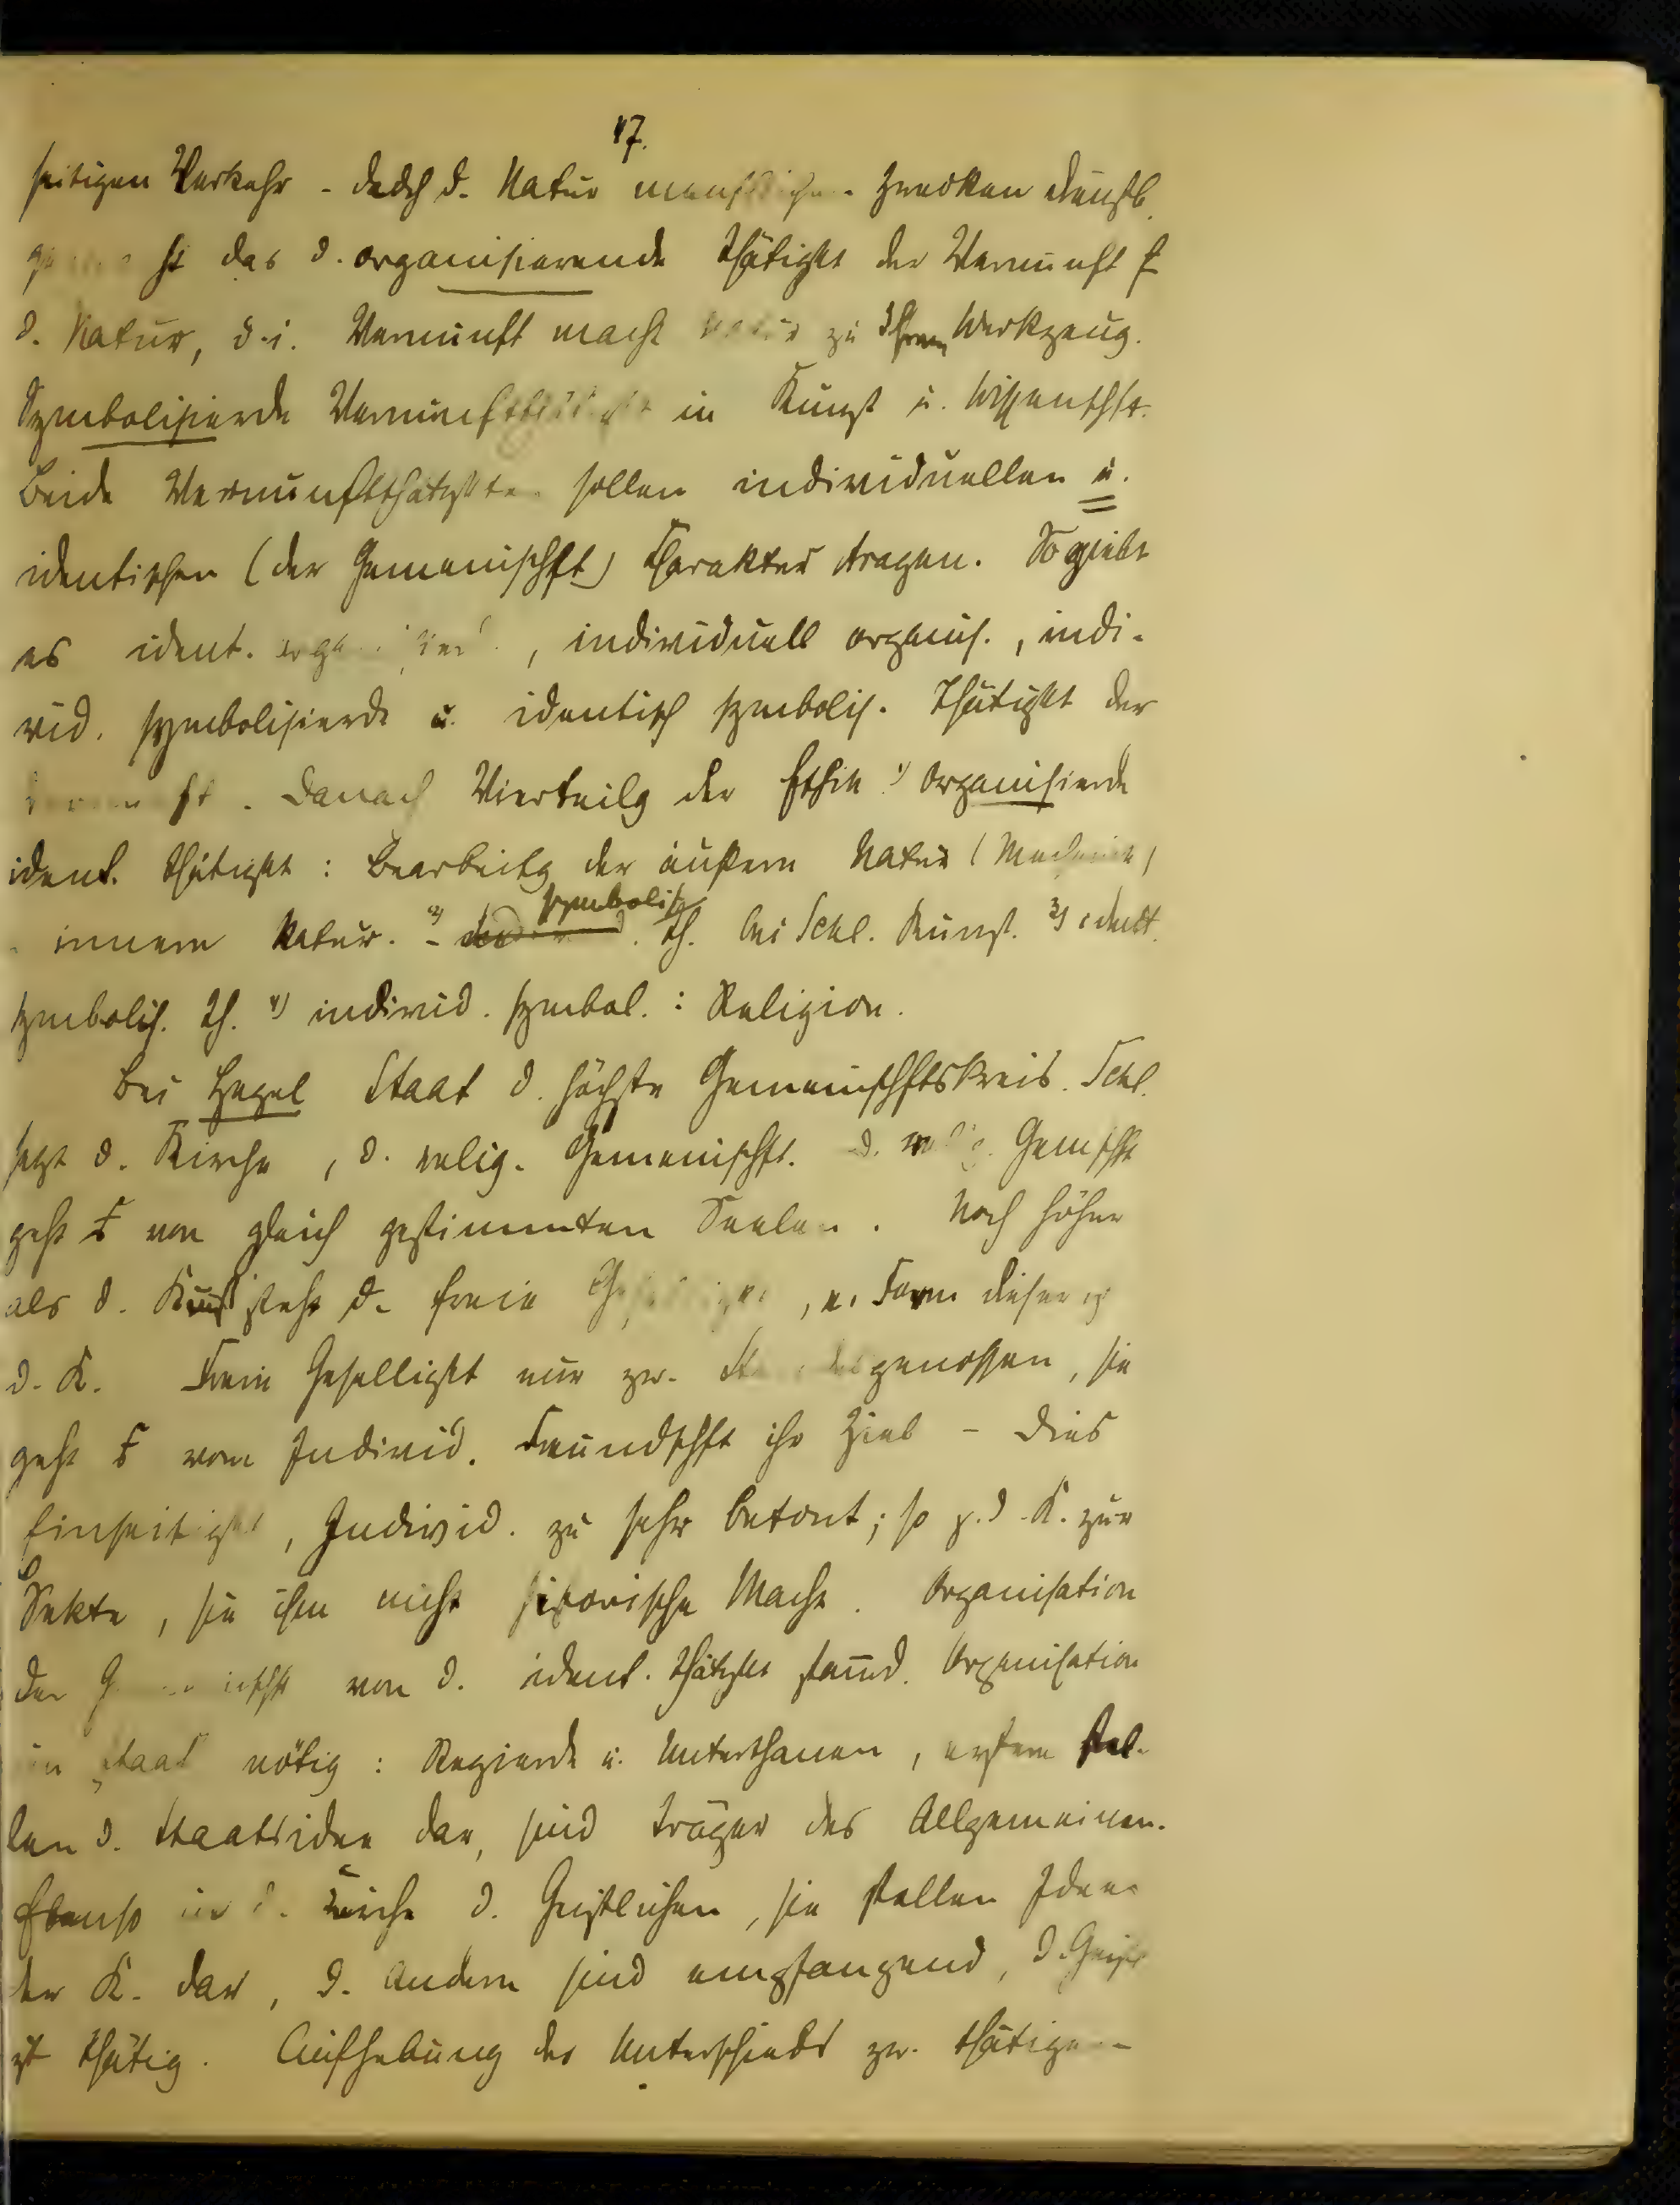 17.
seitigen Verkehr - dadch d. Natur menschlichen Zwecken dienstb.
ist das d. organisierende Thätigkt der Vernunft f
d. Natur, d. i. Vernunft macht Natur zu Ihrem Werkzeug.
Symbolisierde Vernunftthätigkt in Kunst u. Wissenschft.
Beide Vernunftthätigkten sollen individuellen u.
identischen (der Gemeinschft) Charakter tragen. So giebt
es ident. organisierd., individuell organis., indi-
vid. symbolisierde u. identisch symbolis. Thätigkt der
Vernunft. Danach Vierteilg der Ethik 1) Organisierde
ident. Thätigkt: Bearbeitg der äußern Natur (
innern Natur. 2) symbolis. Th. bei Schl. Kunst. 3) ident.
symbolis. Th. 4) individ. symbol.: Religion.
Bei Hegel Staat d. höchste Gemeinschftskreis. Schl.
setzt d. Kirche, d. relig. Gemeinschft. D. relig. Gemschft
geht von gleich gestimmten Seelen. Noch höher
als d. Kunst steht d. freie Geselligkt, e. Form dieser ist
d. K. Freie Geselligkt nur zw. Standesgenossen, sie
geht vom Individ. Freundschft ihr Ziel - dies
Einseitigkt, Individ. zu sehr betont; so z. d. K. zur
Sekte, sie ihm nicht historische Macht. Organisation
der Gemeinschft von d. ident. Thätigkt stammd. Organisation
im Staat nötig: Regierde u. Unterthanen, erstere stel-
len d. Staatsidee dar, sind Träger des Allgemeinen.
Ebenso in d. Kirche d. Geistlichen, sie stellen Idee
der K. dar, d. Andern sind empfangend, d. Geistl.
ist thätig. Aufhebung des Unterschieds zw. thätigen -